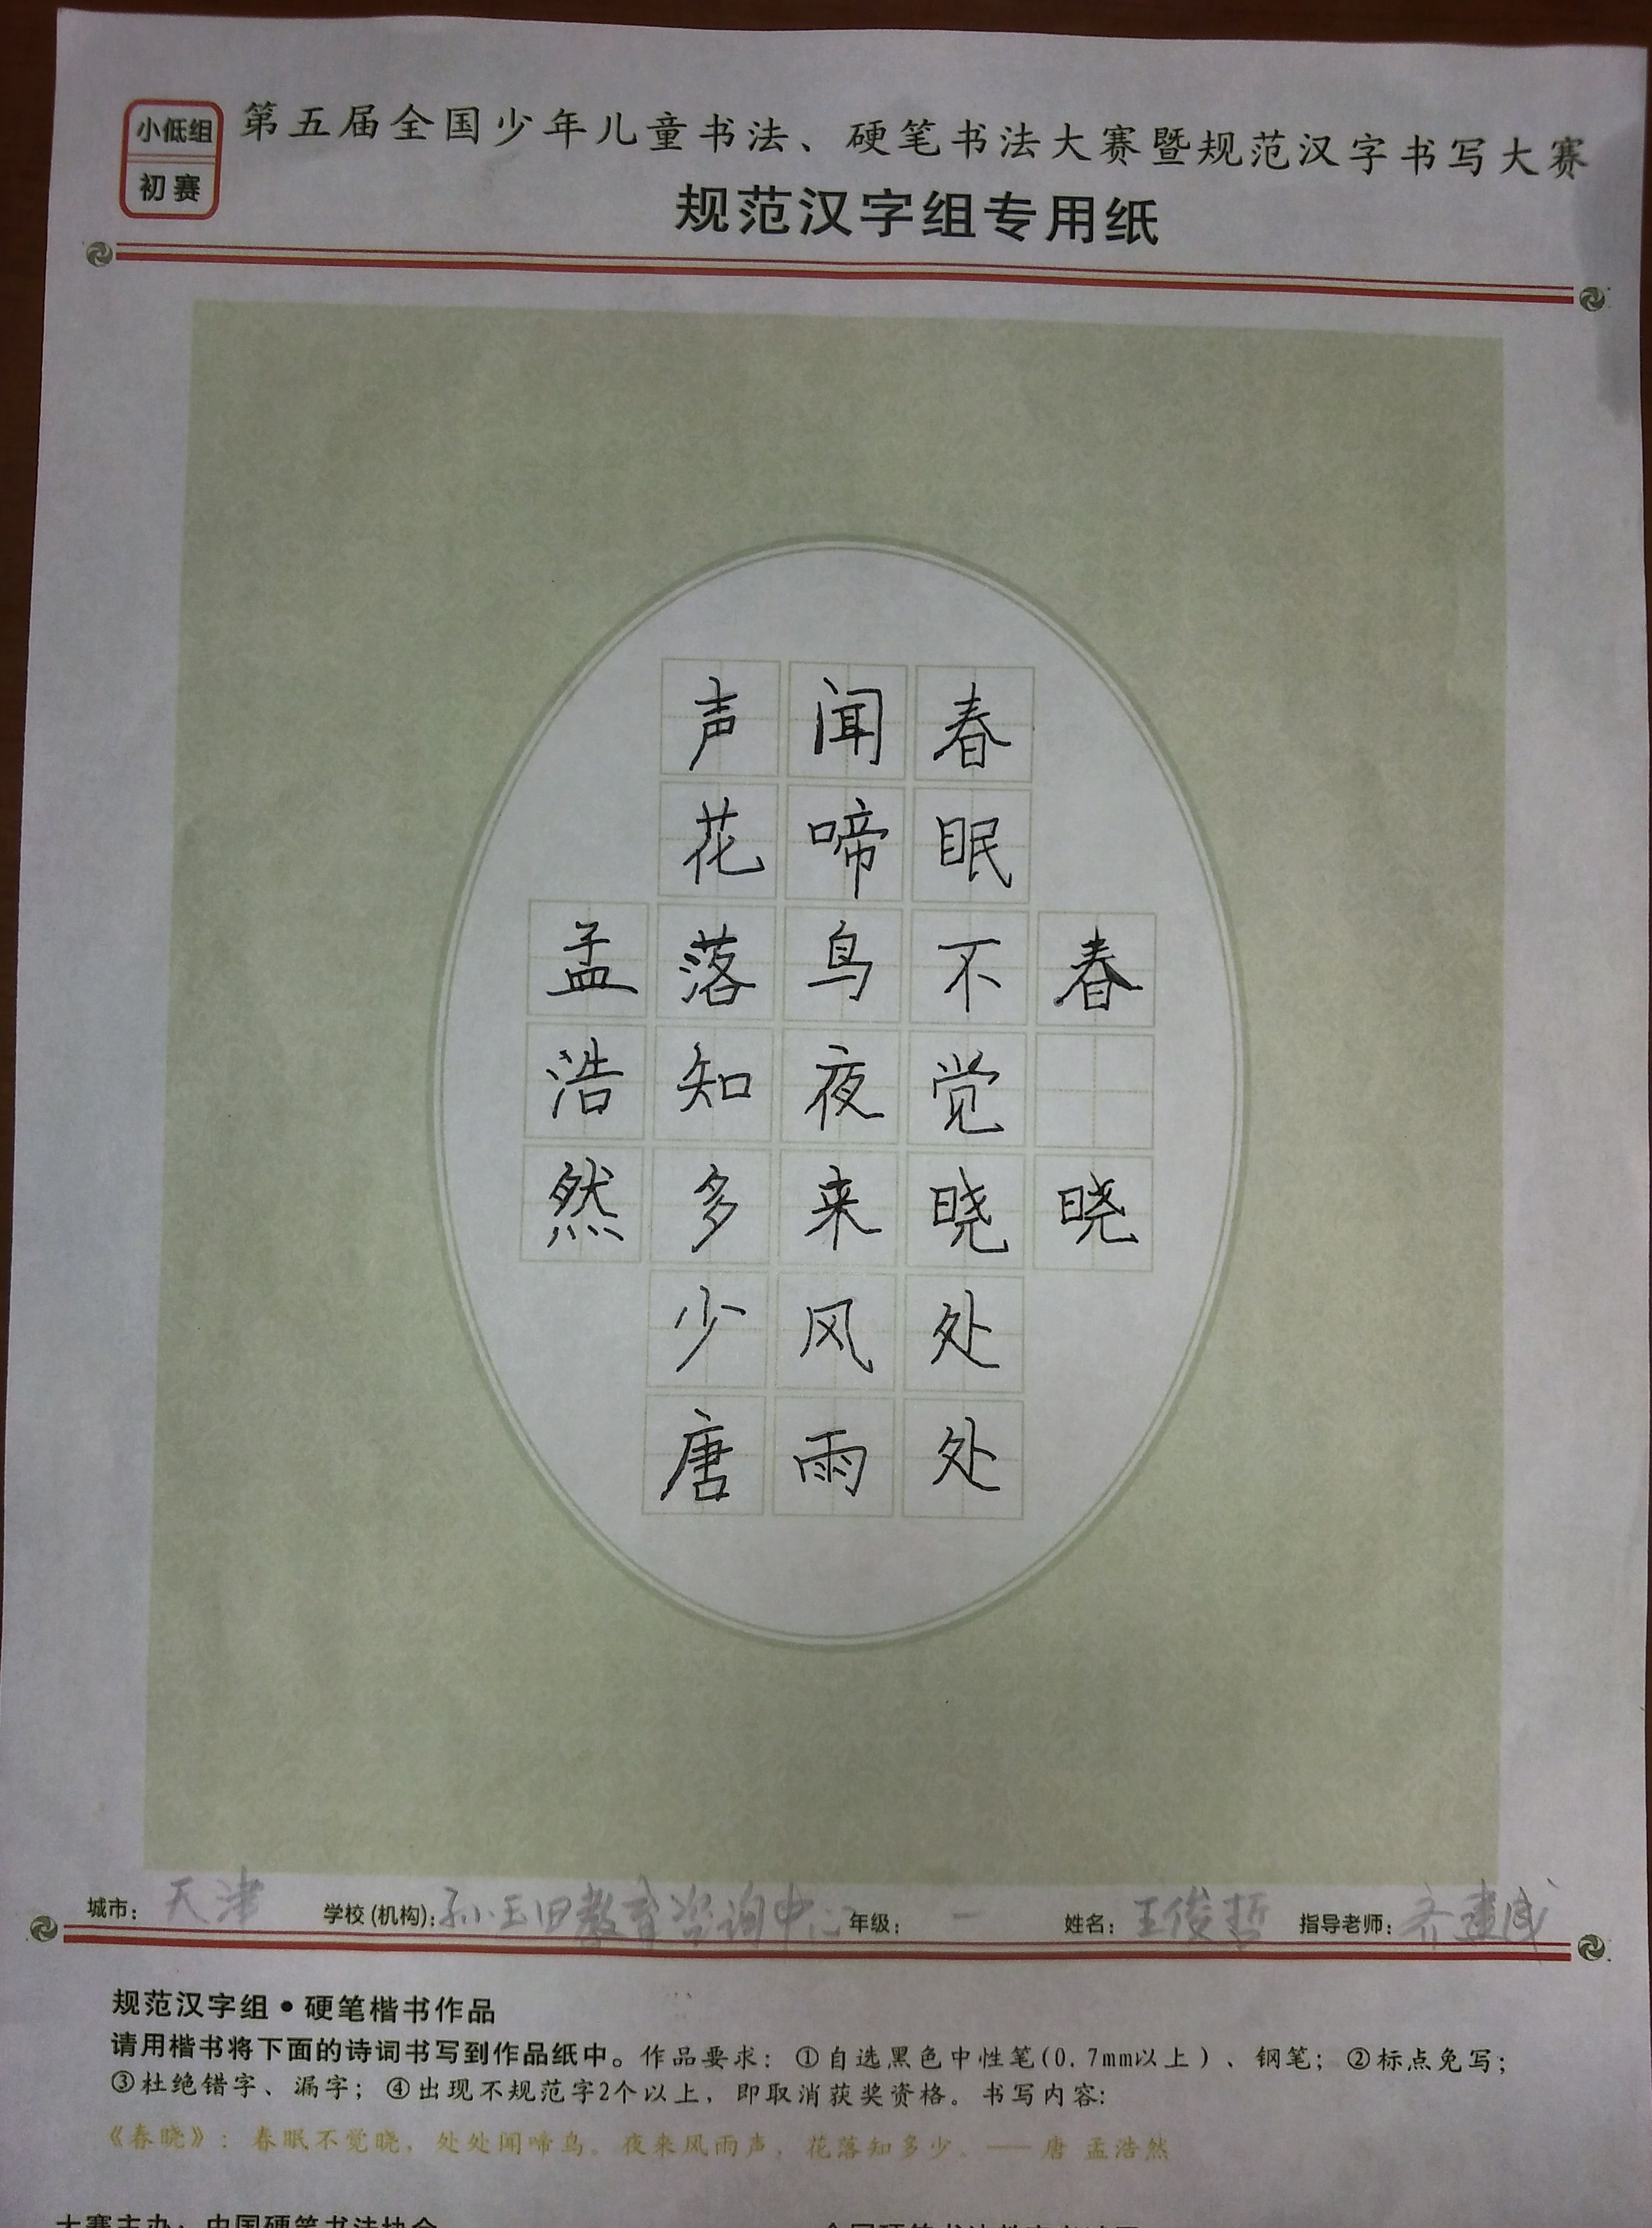 小低组
初赛
第五届全国少年儿童书法、硬笔书法大赛暨规范汉字书写大赛
规范汉字组专用纸
春晓
春眠不觉晓处处
闻啼鸟夜来风雨
声花落知多少唐
孟浩然
城市：天津 学校(机构)：孙玉田教育咨询中心 年级：一 姓名：王俊哲 指导老师：齐建成
规范汉字组·硬笔楷书作品
请用楷书将下面的诗词书写到作品纸中。作品要求：①自选黑色中性笔(0.7mm以上)、钢笔；②标点免写；
③杜绝错字、漏字；④出现不规范字2个以上，即取消获奖资格。书写内容：
《春晓》：春眠不觉晓，处处闻啼鸟。夜来风雨声，花落知多少。——唐 孟浩然
大赛主办：中国硬笔书法协会